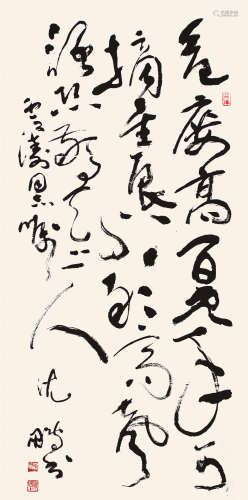 危樓高百尺手可
摘星辰不敢高聲
語恐驚天上人
濤同志嘱
沈鵬书